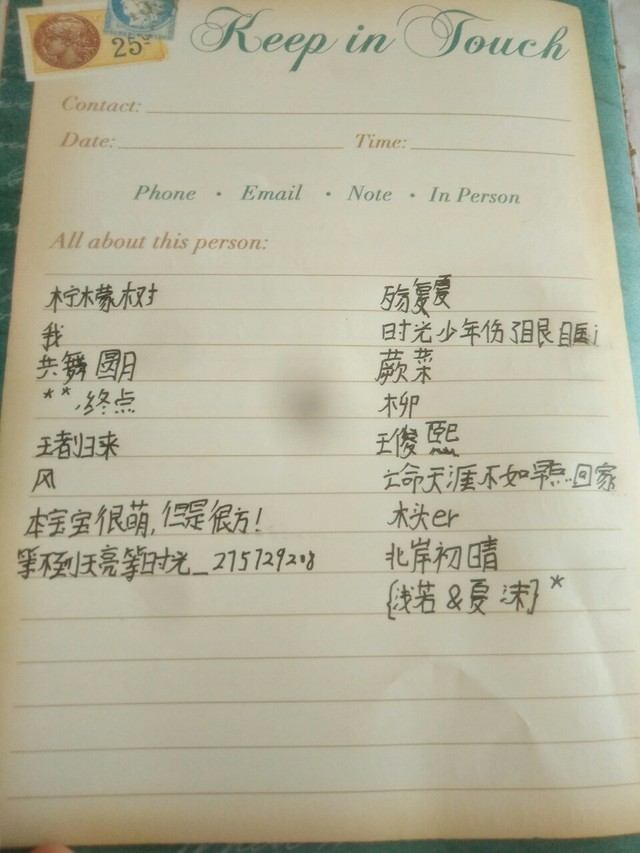 25
Keep in Touch
Contact:
Date: Time:
Phone • Email • Note • In Person
All about this person:
柠檬树
我
共舞圆月
**,终点
王者归来
风
本宝宝很萌,但是很方!
等不到天亮等时光_275729208
殇夏
时光少年伤了眼眶i
蕨菜
柳
王俊熙
亡命天涯不如早点回家
木头er
北岸初晴
{浅若&夏沫}*